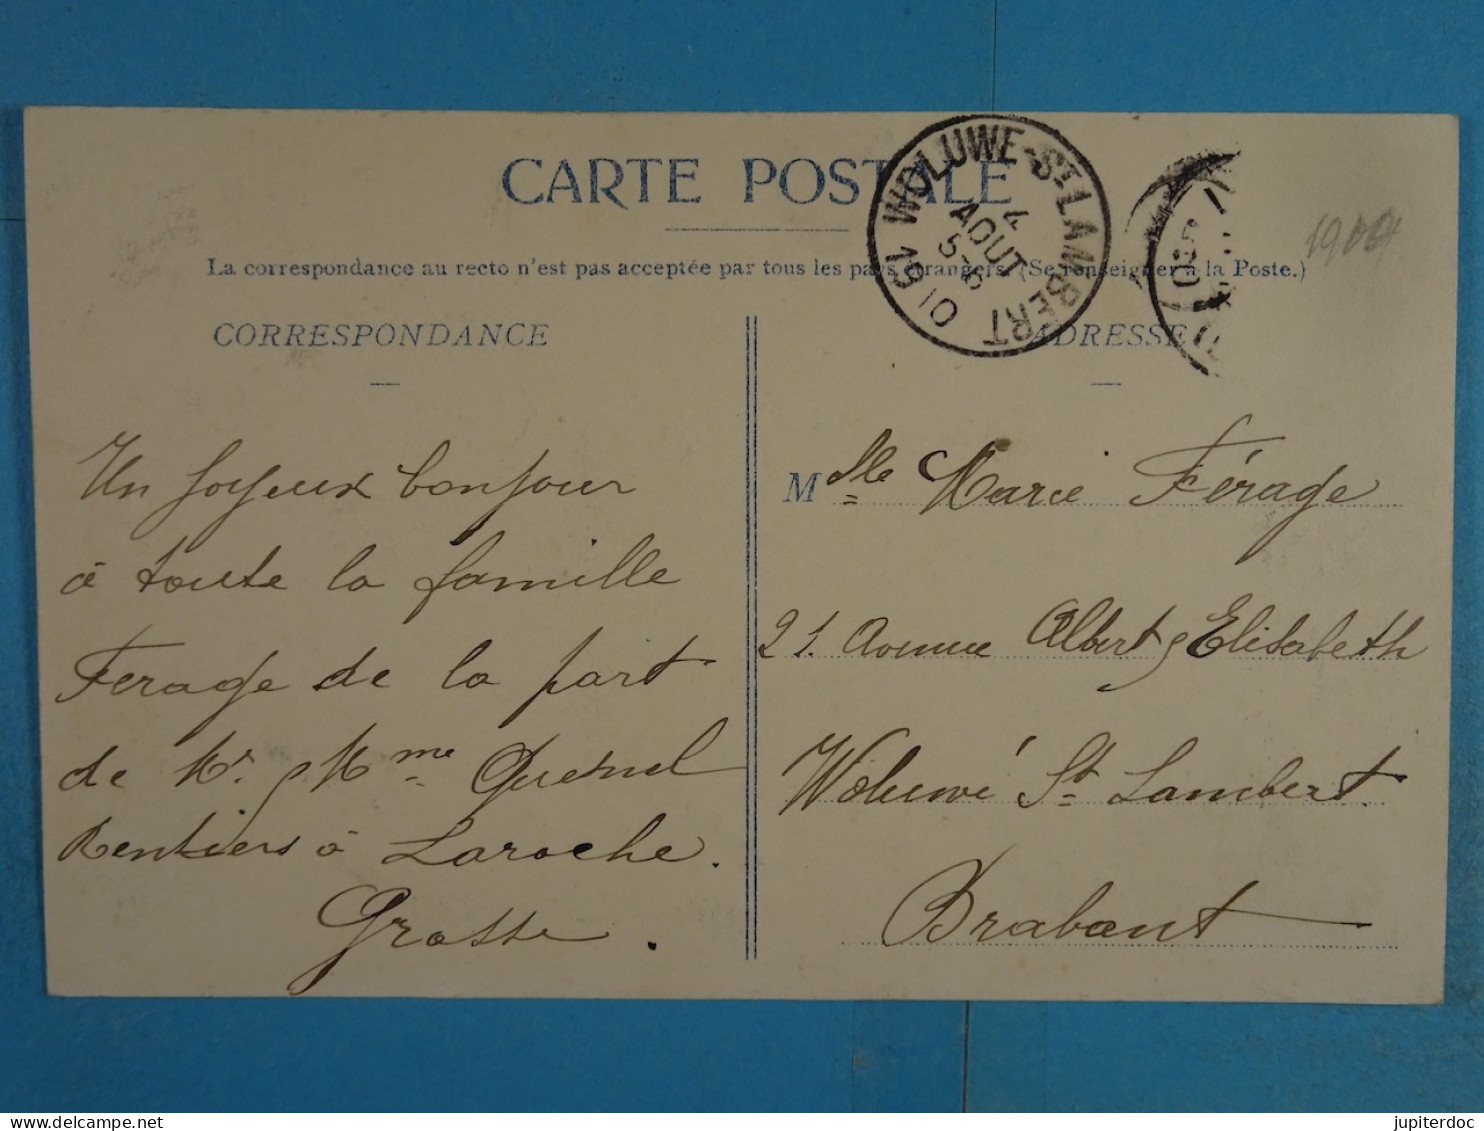 CARTE POSTALE
La correspondance au recto n'est pas acceptée par tous les pays étrangers. (Se renseigner à la Poste.)
WOLUWE-ST LAMBERT
4
AOUT
5-6
1910
CORRESPONDANCE
Un joyeux bonjour
à toute la famille
Ferage de la part
de Mr. & Mme Quesnel
Rentiers à Laroche.
Grosse.
ADRESSE
Mlle Marie Férage
21. Avenue Albert & Elisabeth
Woluwé St Lambert.
Brabant
jupiterdoc
delcampe.net